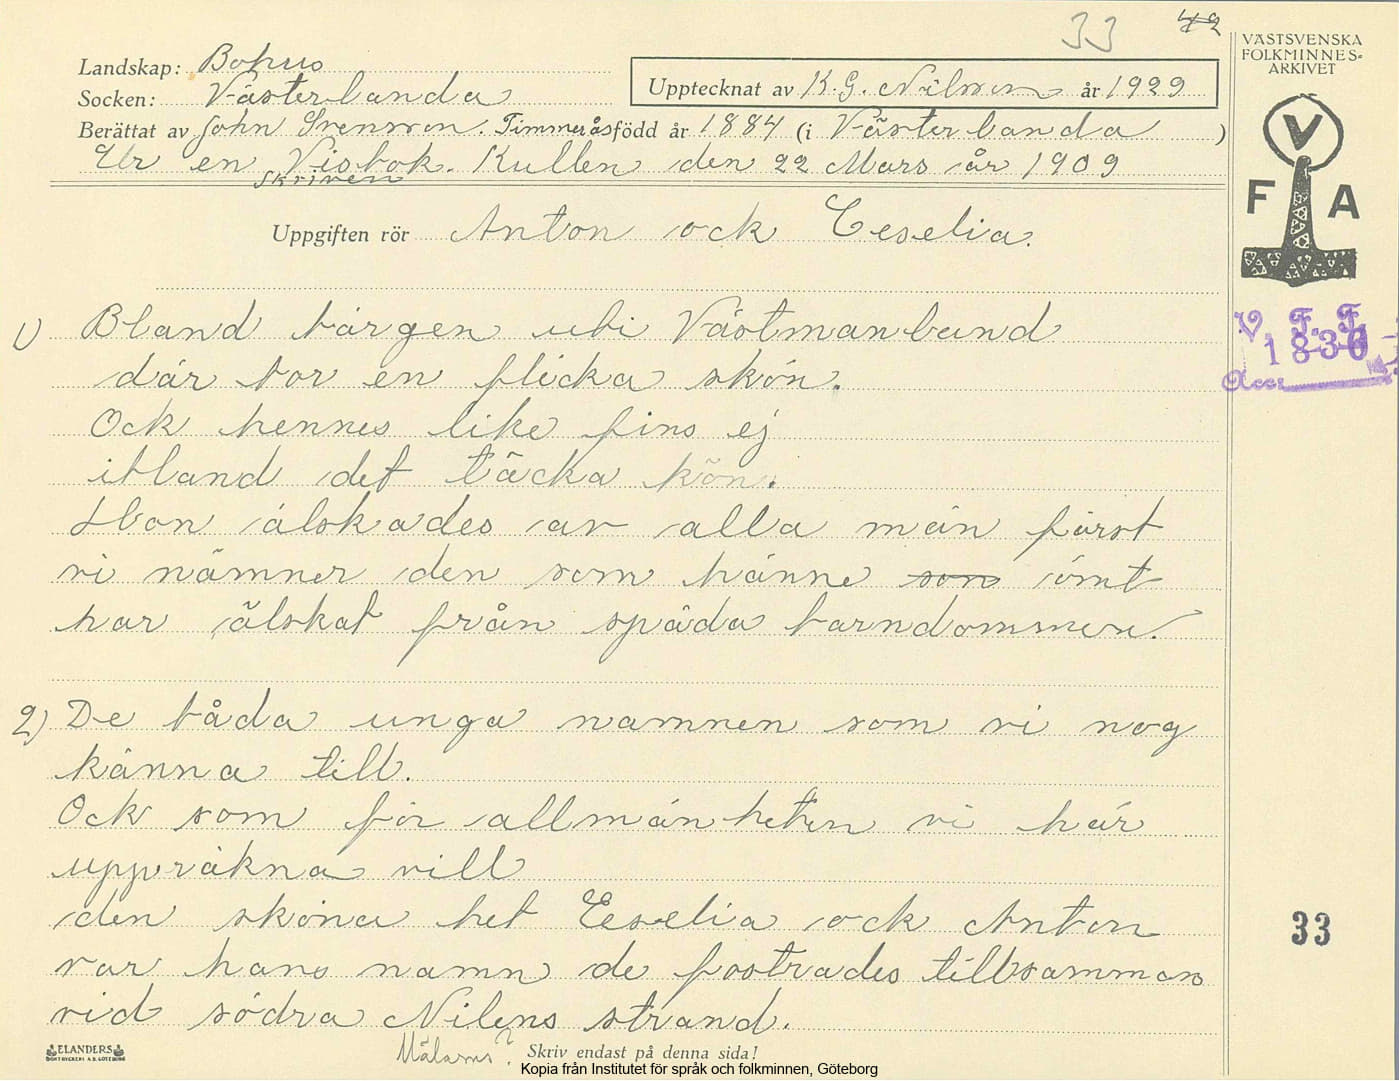 33 42
VÄSTSVENSKA
FOLKMINNES-
ARKIVET
Landskap: Bohus
Socken: Västerlanda
Upptecknat av K. G. Nilsson år 1929
Berättat av John Svensson. Timmerås född år 1884 (i Västerlanda)
Ur en Visbok. Kullen den 22 Mars år 1909
skriven
Uppgiften rör Anton ock Ceselia.
V
F A
V. F. F.
1836
Acc.
1) Bland bärgen uti Västmanland
där bor en flicka skön.
Ock hennes like fins ej
ibland det täcka kön.
Hon älskades av alla män först
vi nämner den som hänne som ömt
har älskat från späda barndommen.
2) De båda unga namnen som vi nog
känna till.
Ock som för allmänheten vi här
uppräkna vill
den sköna het Ceselia ock Anton
var hans namn de fostrades tillsamman
vid södra Nilens strand.
33
Mälarns?
ELANDERS
BOKTRYCKERI A.B. GÖTEBORG
Skriv endast på denna sida!
Kopia från Institutet för språk och folkminnen, Göteborg